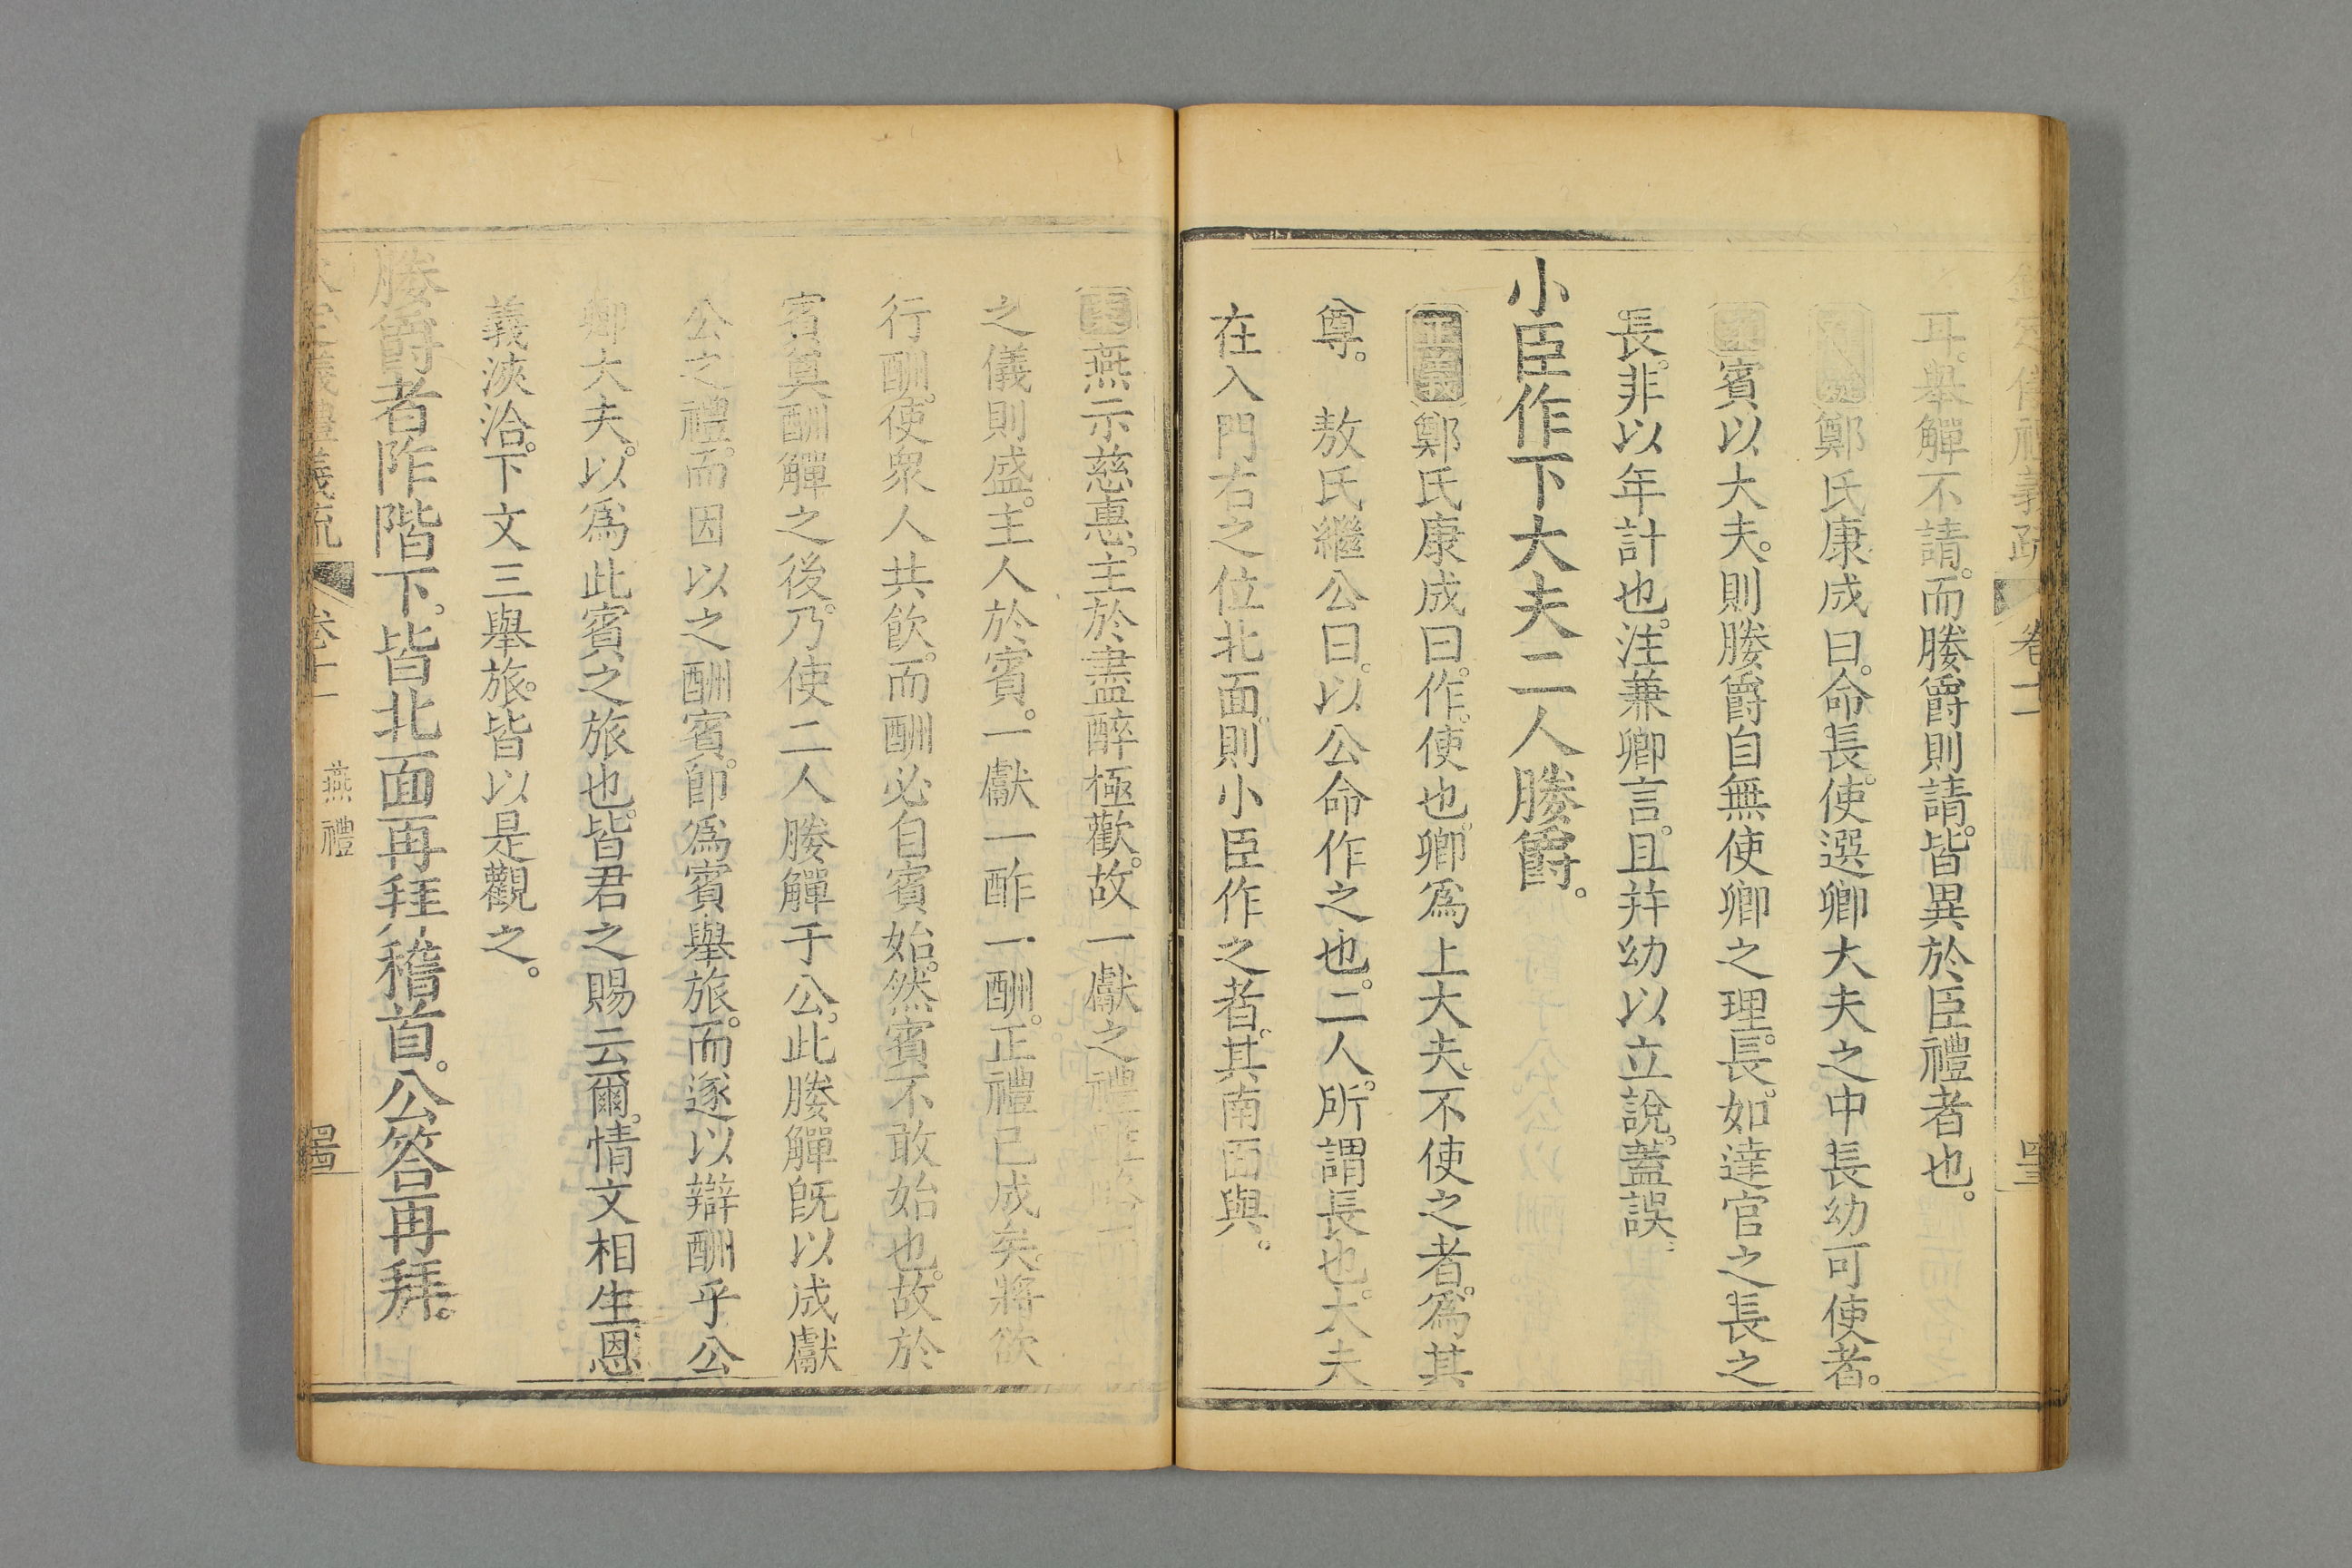 欽定儀禮義疏 卷十一
耳。舉觶不請。而媵爵則請。皆異於臣禮者也。
鄭氏康成曰。命長。使選卿大夫之中長幼可使者。
賓以大夫。則媵爵自無使卿之理。長。如達官之長之
長。非以年計也。注兼卿言。且并幼以立說。蓋誤。
小臣作下大夫二人媵爵。
正義鄭氏康成曰。作。使也。卿爲上大夫。不使之者。爲其
尊。 敖氏繼公曰。以公命作之也。二人。所謂長也。大夫
在入門右之位北面。則小臣作之者。其南面與。
燕示慈惠。主於盡醉極歡。故一獻之禮
之儀則盛。主人於賓。一獻一酢一酬。正禮已成矣。將欲
行酬。使衆人共飲。而酬必自賓始。然賓不敢始也。故於
賓奠酬觶之後。乃使二人媵觶于公。此媵觶旣以成獻
公之禮。而因以之酬賓。卽爲賓舉旅。而遂以辯酬乎公
卿大夫。以爲此賓之旅也。皆君之賜云爾。情文相生。恩
義浹洽。下文三舉旅。皆以是觀之。
媵爵者阼階下。皆北面再拜稽首。公答再拜。
欽定儀禮義疏 卷十一 燕禮